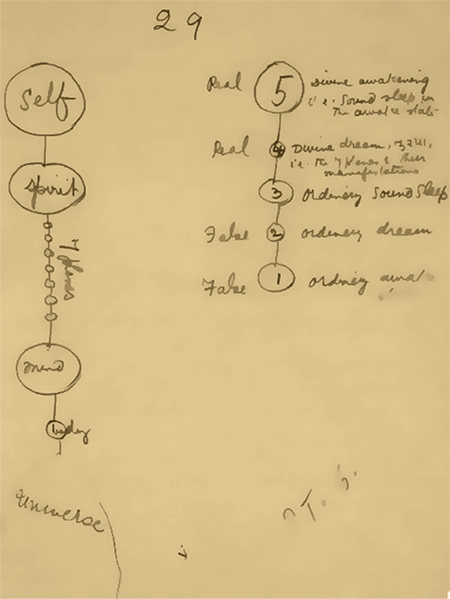 29
Self
Spirit
7 planes
mind
body
Universe
Real 5 Divine awakening
i.e. Sound sleep in
the awake state
Real 4 Divine dream,
i.e. the 7 planes & their
manifestations
3 Ordinary Sound Sleep
False 2 ordinary dream
False 1 ordinary